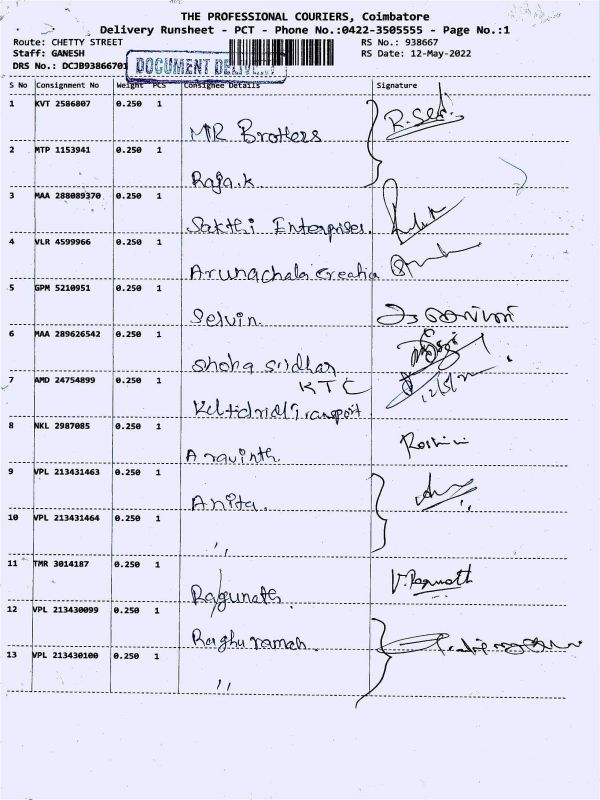 THE PROFESSIONAL COURIERS, Coimbatore
Delivery Runsheet - PCT - Phone No.:0422-3505555 - Page No.:1
Route: CHETTY STREET RS No.: 938667
Staff: GANESH RS Date: 12-May-2022
DRS No.: DCJB93866701 DOCUMENT DELIVERY
S No Consignment No Weight PCS Consignee Details Signature
1 KVT 2586807 0.250 1
MR Brothers R.Selvi
2 MTP 1153941 0.250 1
Raja.k
3 MAA 288089370 0.250 1
Sakthi Enterprises.
4 VLR 4599966 0.250 1
Arunachala Creatio
5 GPM 5210951 0.250 1
Selvin
6 MAA 289626542 0.250 1
Shoba sridhar
7 AMD 24754899 0.250 1 KTC 12/5/22
Transport
8 NKL 2987085 0.250 1
Aravinth. Roshini
9 VPL 213431463 0.250 1
Anita.
10 VPL 213431464 0.250 1
,,
11 TMR 3014187 0.250 1
Ragunath. V.Ragunath
12 VPL 213430099 0.250 1
Raghuraman.
13 VPL 213430100 0.250 1
,,